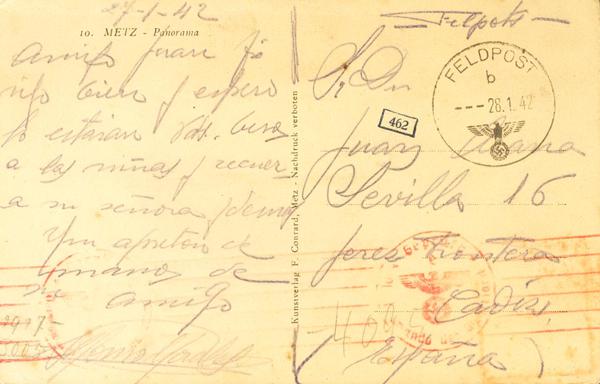 27-1-42
10. METZ - Panorama
Amigo Juan yo
sigo bien y espero
lo estarán Vds. besos
a las niñas y recuer
a su señora
Un apreton de
manos de
su amigo
Kunstverlag F. Conrard, Metz - Nachdruck verboten
Felpots
FELDPOST
b
--- 28.1.42
Sr. Dn
462
Juan
Sevilla 16
Jeres Frontera
Cadiz
(España)